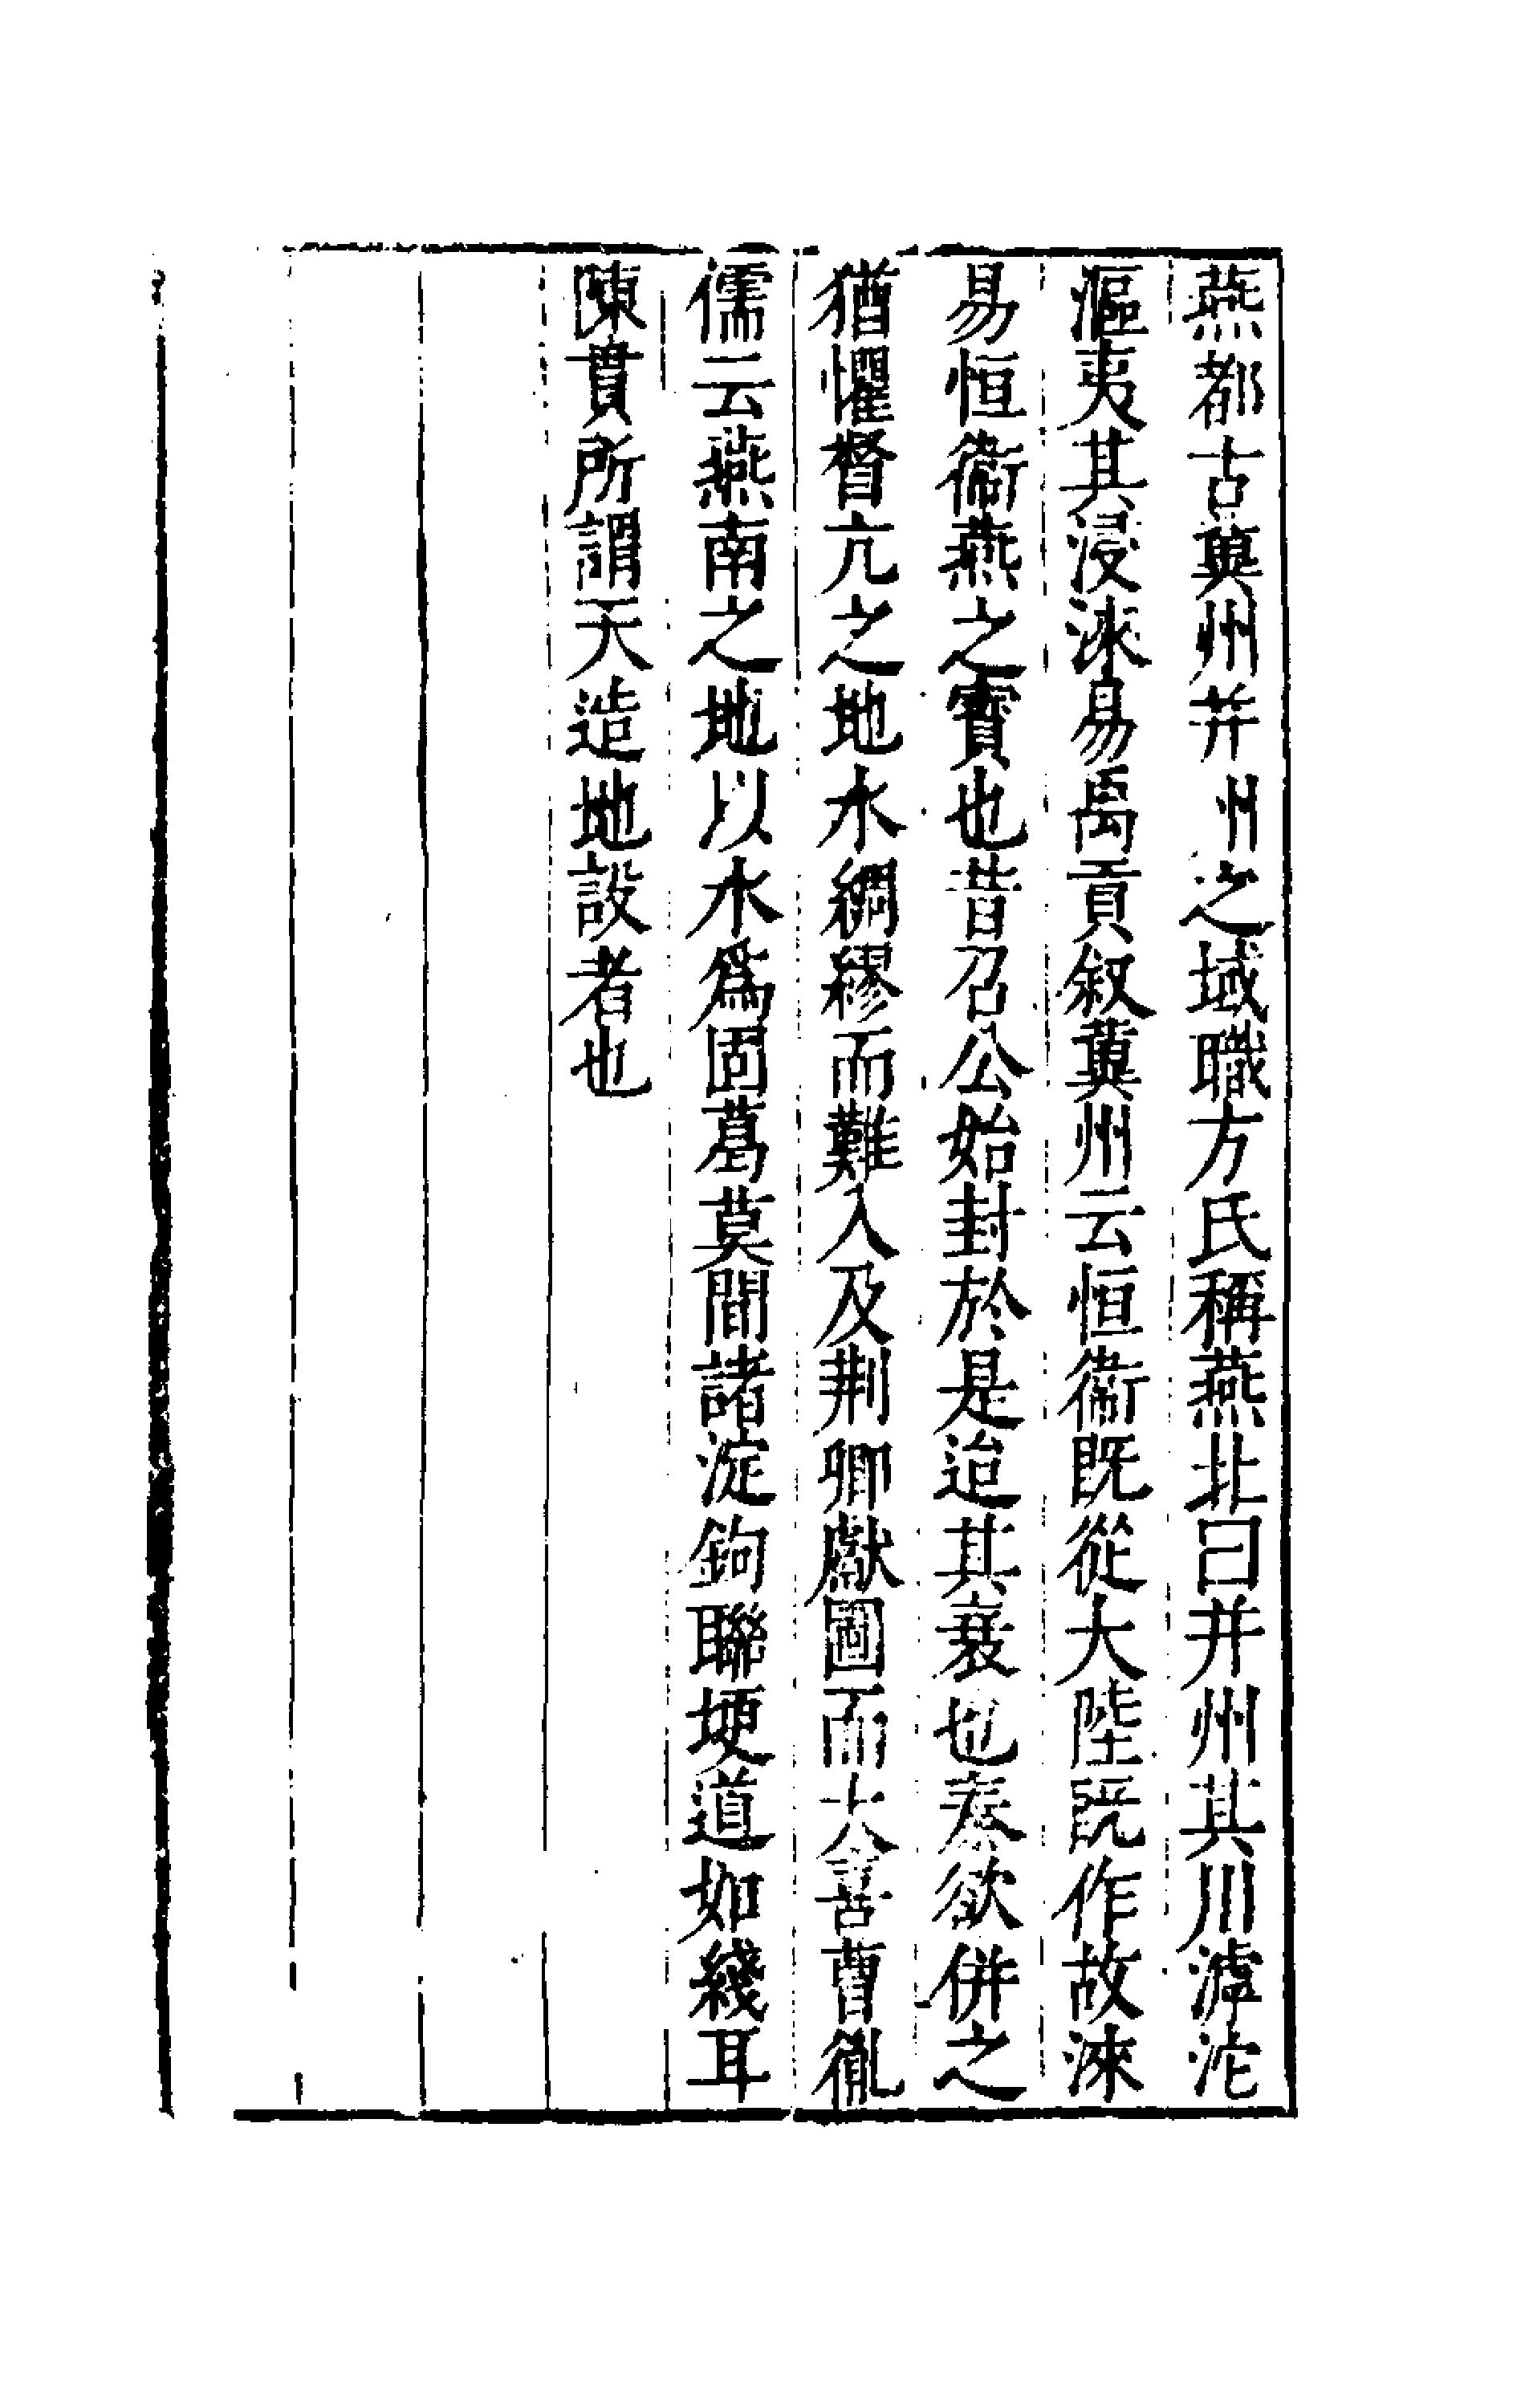 燕都古冀州并州之域職方氏稱燕北曰并州其川滹沱
漚夷其浸淶易禹貢叙冀州云恒衞既從大陸既作故淶
易恒衞燕之寶也昔召公始封於是迨其衰也秦欲併之
猶懼督亢之地水綢繆而難入及荆卿獻圖而大喜曹胤
儒云燕南之地以水爲固葛莫間諸淀鉤聯埂道如綫耳
陳貫所謂天造地設者也